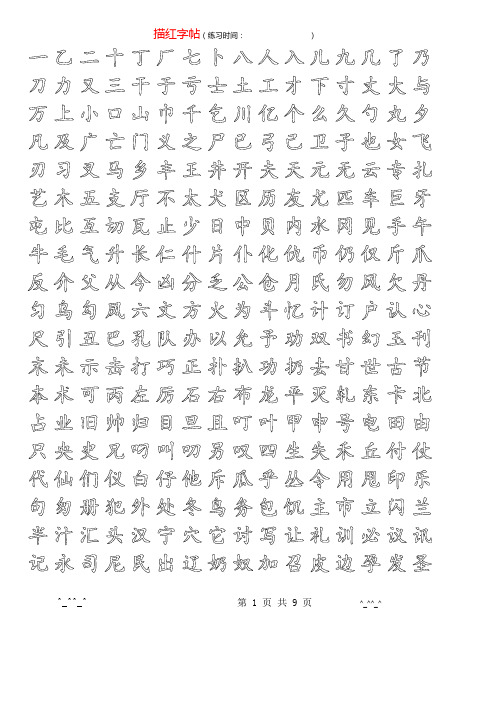 描红字帖（练习时间：　　　　　　）
一乙二十丁厂七卜八人入儿九几了乃
刀力又三干于亏士土工才下寸丈大与
万上小口山巾千乞川亿个么久勺丸夕
凡及广亡门义之尸已弓己卫子也女飞
刃习叉马乡丰王井开夫天元无云专扎
艺木五支厅不太犬区历友尤匹车巨牙
屯比互切瓦止少日中贝内水冈见手午
牛毛气升长仁什片仆化仇币仍仅斤爪
反介父从今凶分乏公仓月氏勿风欠丹
匀乌勾凤六文方火为斗忆计订户认心
尺引丑巴孔队办以允予劝双书幻玉刊
末未示击打巧正扑扒功扔去甘世古节
本术可丙左厉石右布龙平灭轧东卡北
占业旧帅归目旦且叮叶甲申号电田由
只央史兄叼叫叨另叹四生失禾丘付仗
代仙们仪白仔他斥瓜乎丛令用甩印乐
句匆册犯外处冬鸟务包饥主市立闪兰
半汁汇头汉宁穴它讨写让礼训必议讯
记永司尼民出辽奶奴加召皮边孕发圣
^_^^_^　第 1 页 共 9 页　^_^^_^